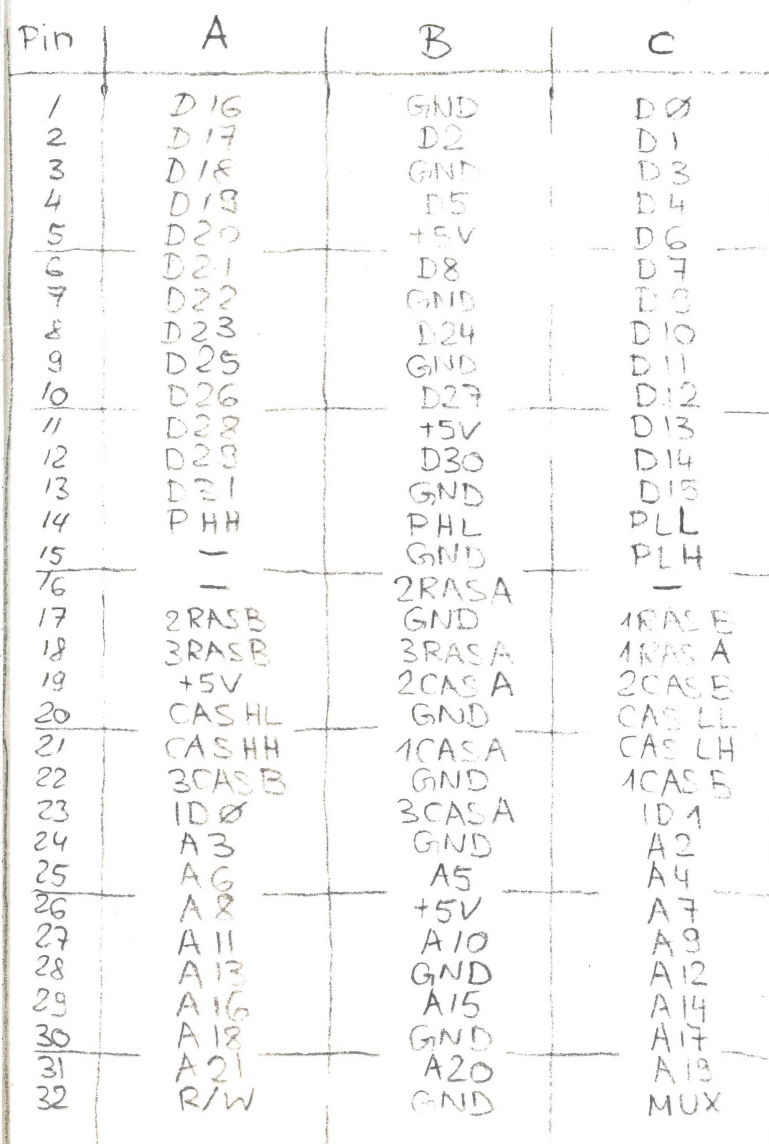 Pin A B C
1 D16 GND DØ
2 D17 D2 D1
3 D18 GND D3
4 D19 D5 D4
5 D20 +5V D6
6 D21 D8 D7
7 D22 GND D9
8 D23 D24 D10
9 D25 GND D11
10 D26 D27 D12
11 D28 +5V D13
12 D29 D30 D14
13 D21 GND D15
14 PHH PHL PLL
15 — GND PLH
16 — 2RASA —
17 2RASB GND 1RASB
18 3RASB 3RASA 1RASA
19 +5V 2CASA 2CASB
20 CASHL GND CASLL
21 CASHH 1CASA CASLH
22 3CASB GND 1CASB
23 IDØ 3CASA ID1
24 A3 GND A2
25 A6 A5 A4
26 A8 +5V A7
27 A11 A10 A9
28 A13 GND A12
29 A16 A15 A14
30 A18 GND A17
31 A21 A20 A19
32 R/W GND MUX